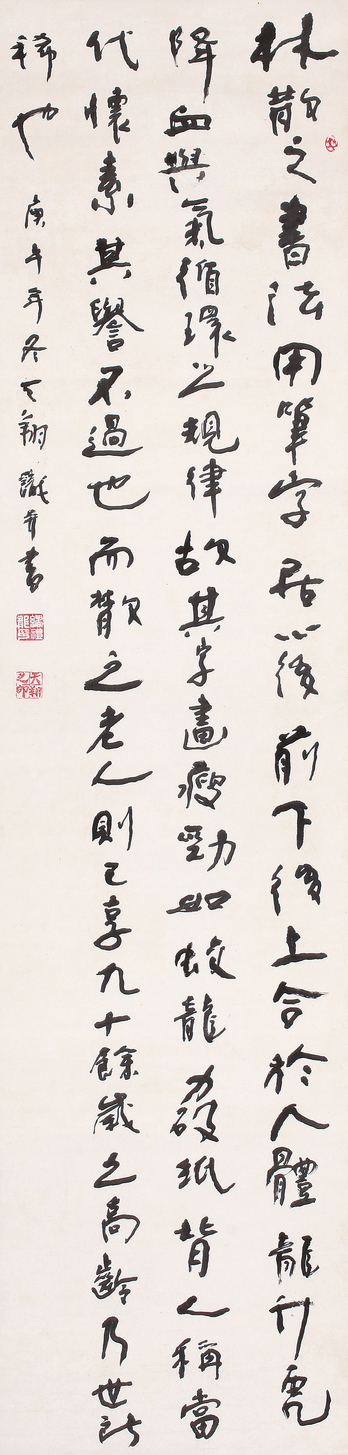 林散之書法用筆字居心後前下後上合於人體龍升虎
降血與氣循環之規律故其字畫瘦勁如蛟龍力破紙背人稱當
代懷素其譽不過也而散之老人則已享九十餘歲之高齡乃世所
稀也
庚午年冬天翔識并書